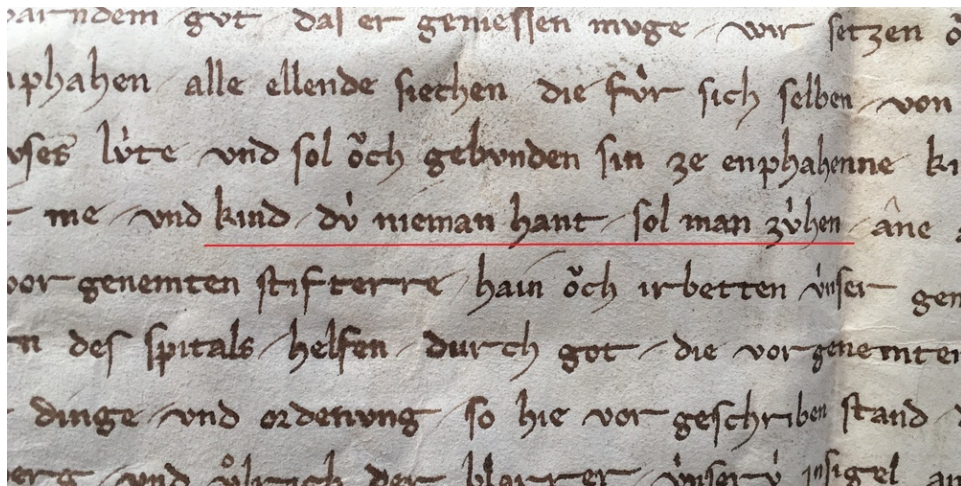 varndem gvt das er geniessen mvge wir setzen
enphahen alle ellende siechen die fv̍r sich selben von
vses lv̍te vnd sol o̍ch gebvnden sin ze enphahenne ki
me vnd kind dv̍ nieman hant sol man zv̍hen âne
vorgenemten stifterre hain o̍ch irbetten v̍nser gen
n des spitals helfen durch got die vorgenemten
dinge vnd ordenvng so hie vor geschriben stand
berg vnd vͦlrich der blarrer v̍nserv̍ insigel an